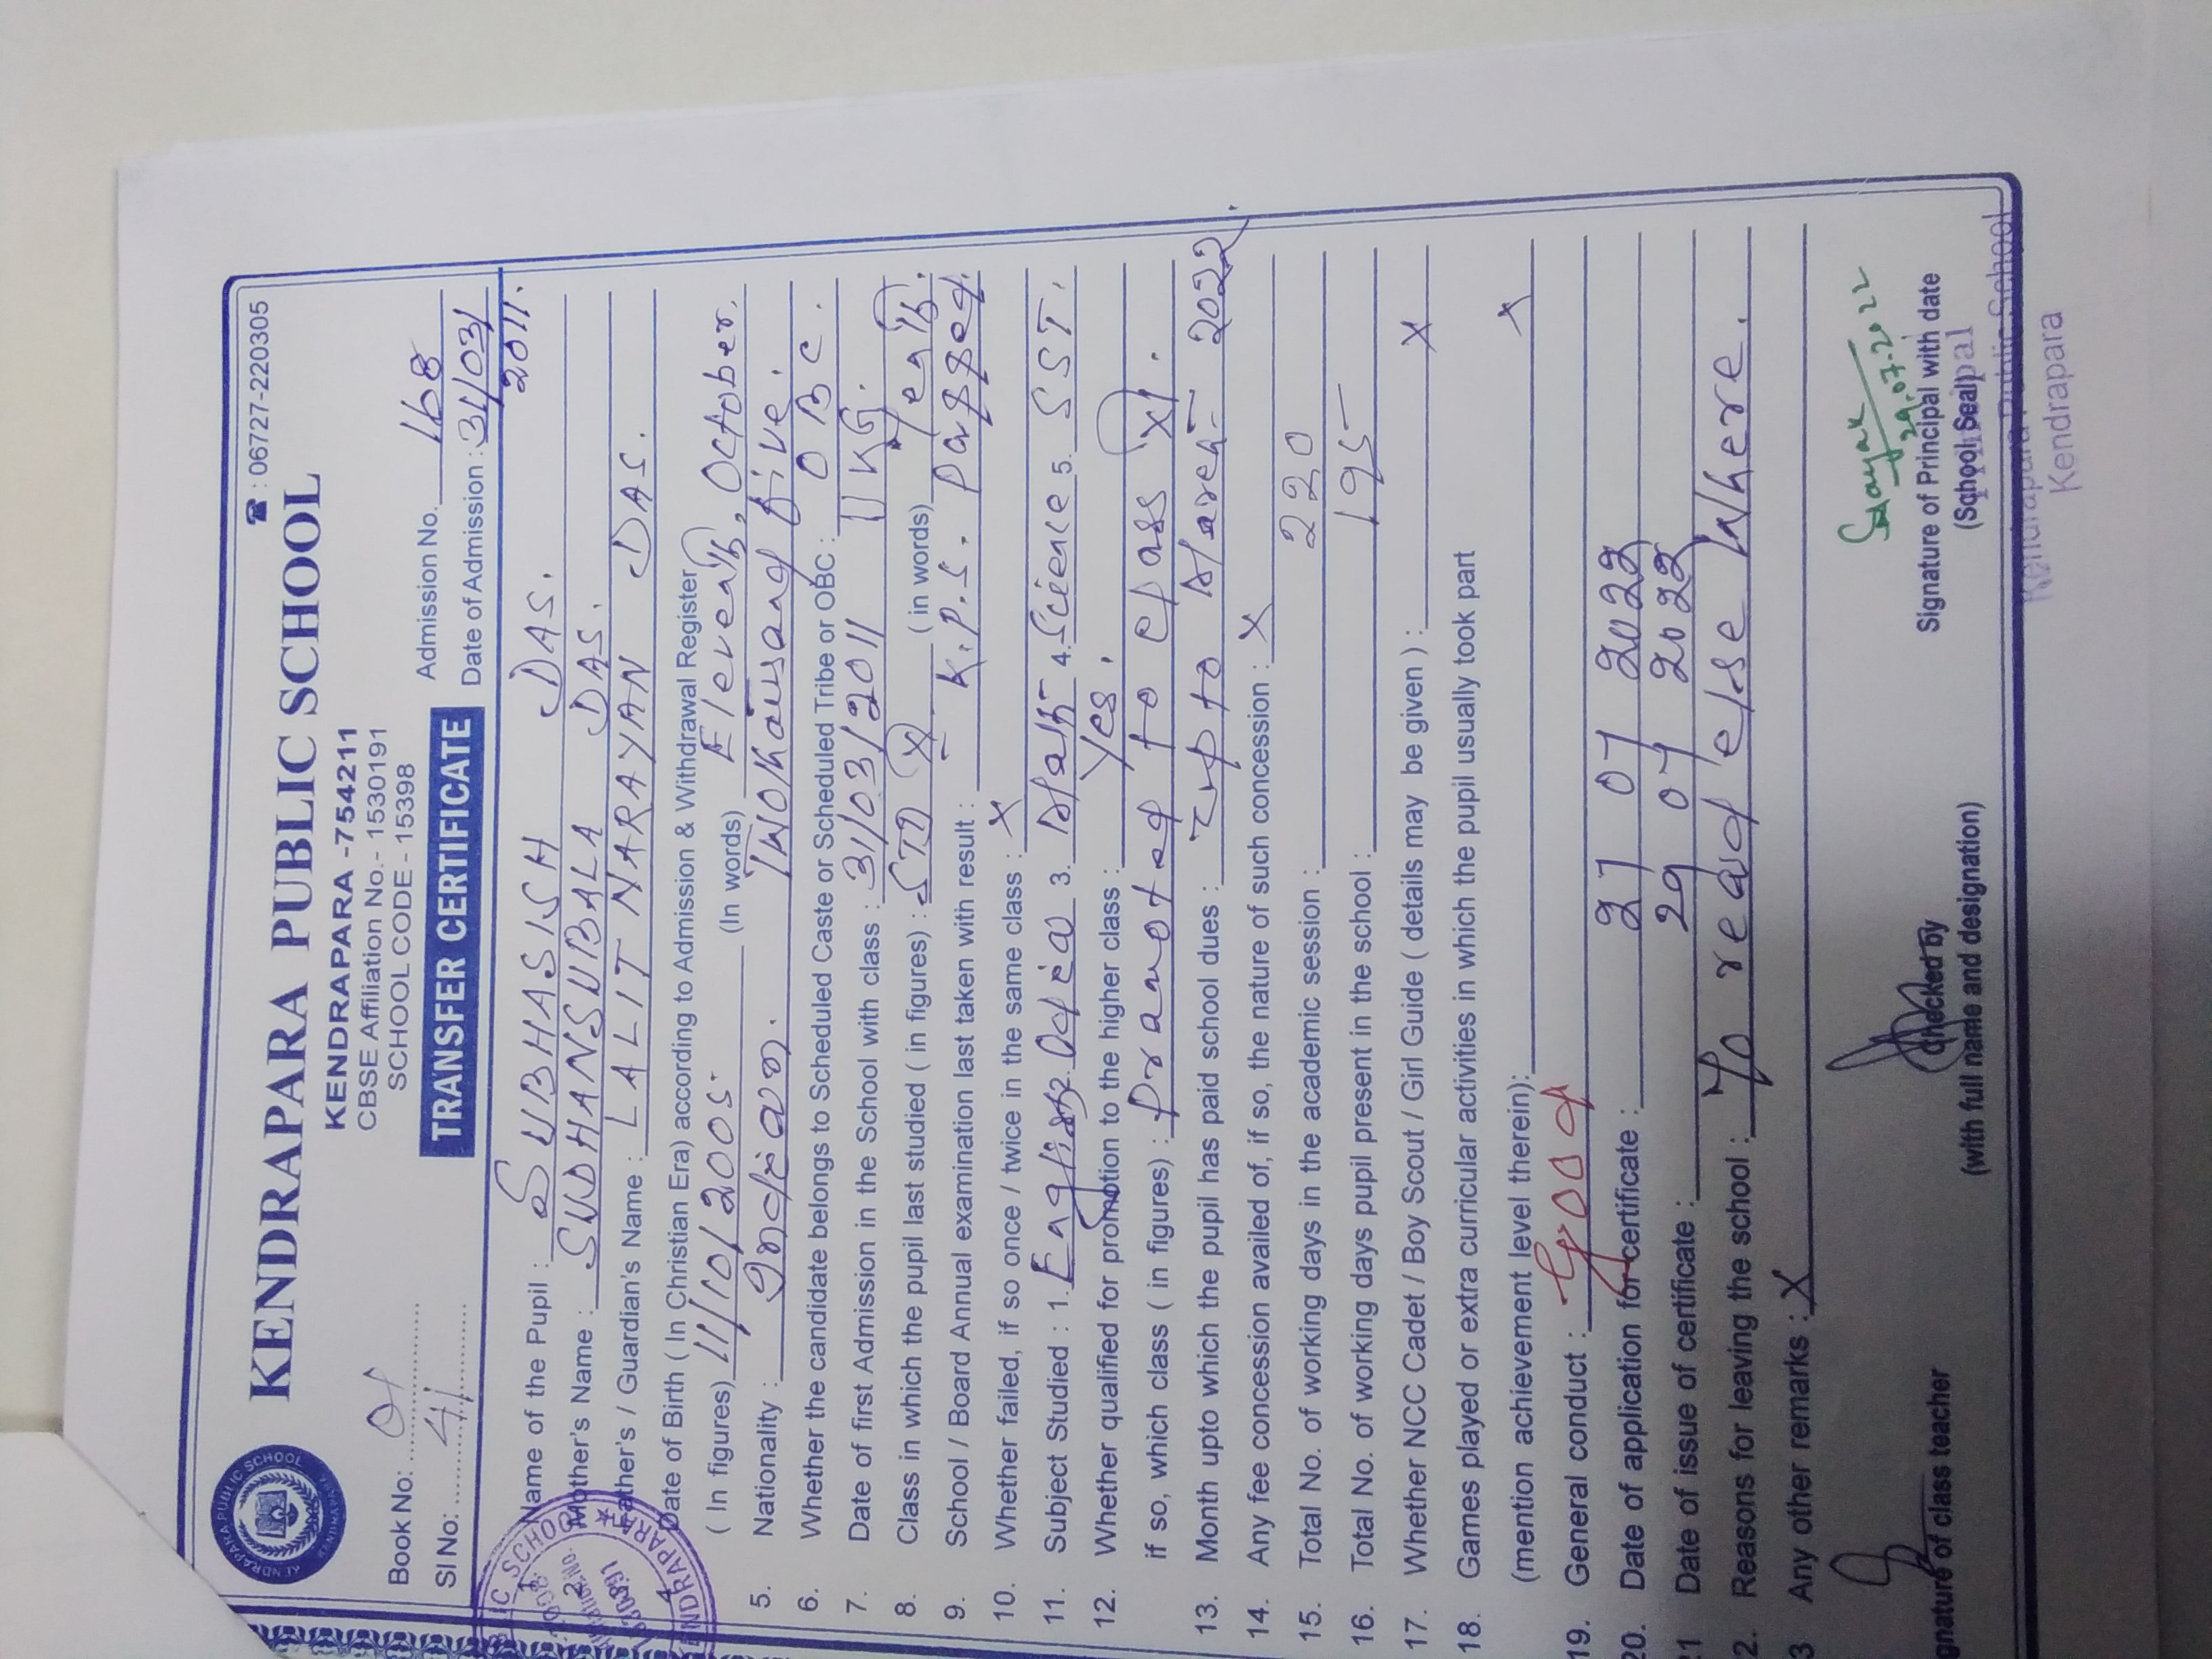 KENDRAPARA PUBLIC SCHOOL
☎ : 06727-220305
KENDRAPARA -754211
CBSE Affiliation No.- 1530191
SCHOOL CODE - 15398
Book No: 01
Sl No: 41
TRANSFER CERTIFICATE
Admission No. 168
Date of Admission : 31/03/2011.
1. Name of the Pupil : SUBHASISH DAS.
2. Mother's Name : SUDHANSUBALA DAS.
Father's / Guardian's Name : LALIT NARAYAN DAS.
4 Date of Birth ( In Christian Era) according to Admission & Withdrawal Register
( In figures) 11/10/2005 (In words) Eleventh, October,
Two thousand five.
5. Nationality : Indian.
6. Whether the candidate belongs to Scheduled Caste or Scheduled Tribe or OBC : OBC.
7. Date of first Admission in the School with class : 31/03/2011 UKG.
8. Class in which the pupil last studied ( in figures) : STD X ( in words) Tenth.
9. School / Board Annual examination last taken with result : K.P.S. Passed.
10. Whether failed, if so once / twice in the same class : X
11. Subject Studied : 1. English 2. Odia 3. Math 4. Science 5. SST.
12. Whether qualified for promotion to the higher class : Yes.
if so, which class ( in figures) : Pramoted to class XI.
13. Month upto which the pupil has paid school dues : upto March 2022.
14. Any fee concession availed of, if so, the nature of such concession : X
15. Total No. of working days in the academic session : 220
16. Total No. of working days pupil present in the school : 195
17. Whether NCC Cadet / Boy Scout / Girl Guide ( details may be given ) : X
18. Games played or extra curricular activities in which the pupil usually took part
(mention achievement level therein): X
19. General conduct : Good
20. Date of application for certificate : 27 07 2022
21 Date of issue of certificate : 29 07 2022
2. Reasons for leaving the school : To read else where.
3 Any other remarks : X
29.07.2022
gnature of class teacher
Checked by
(with full name and designation)
Signature of Principal with date
(School Seal)
Principal
Kendrapara Public School
Kendrapara